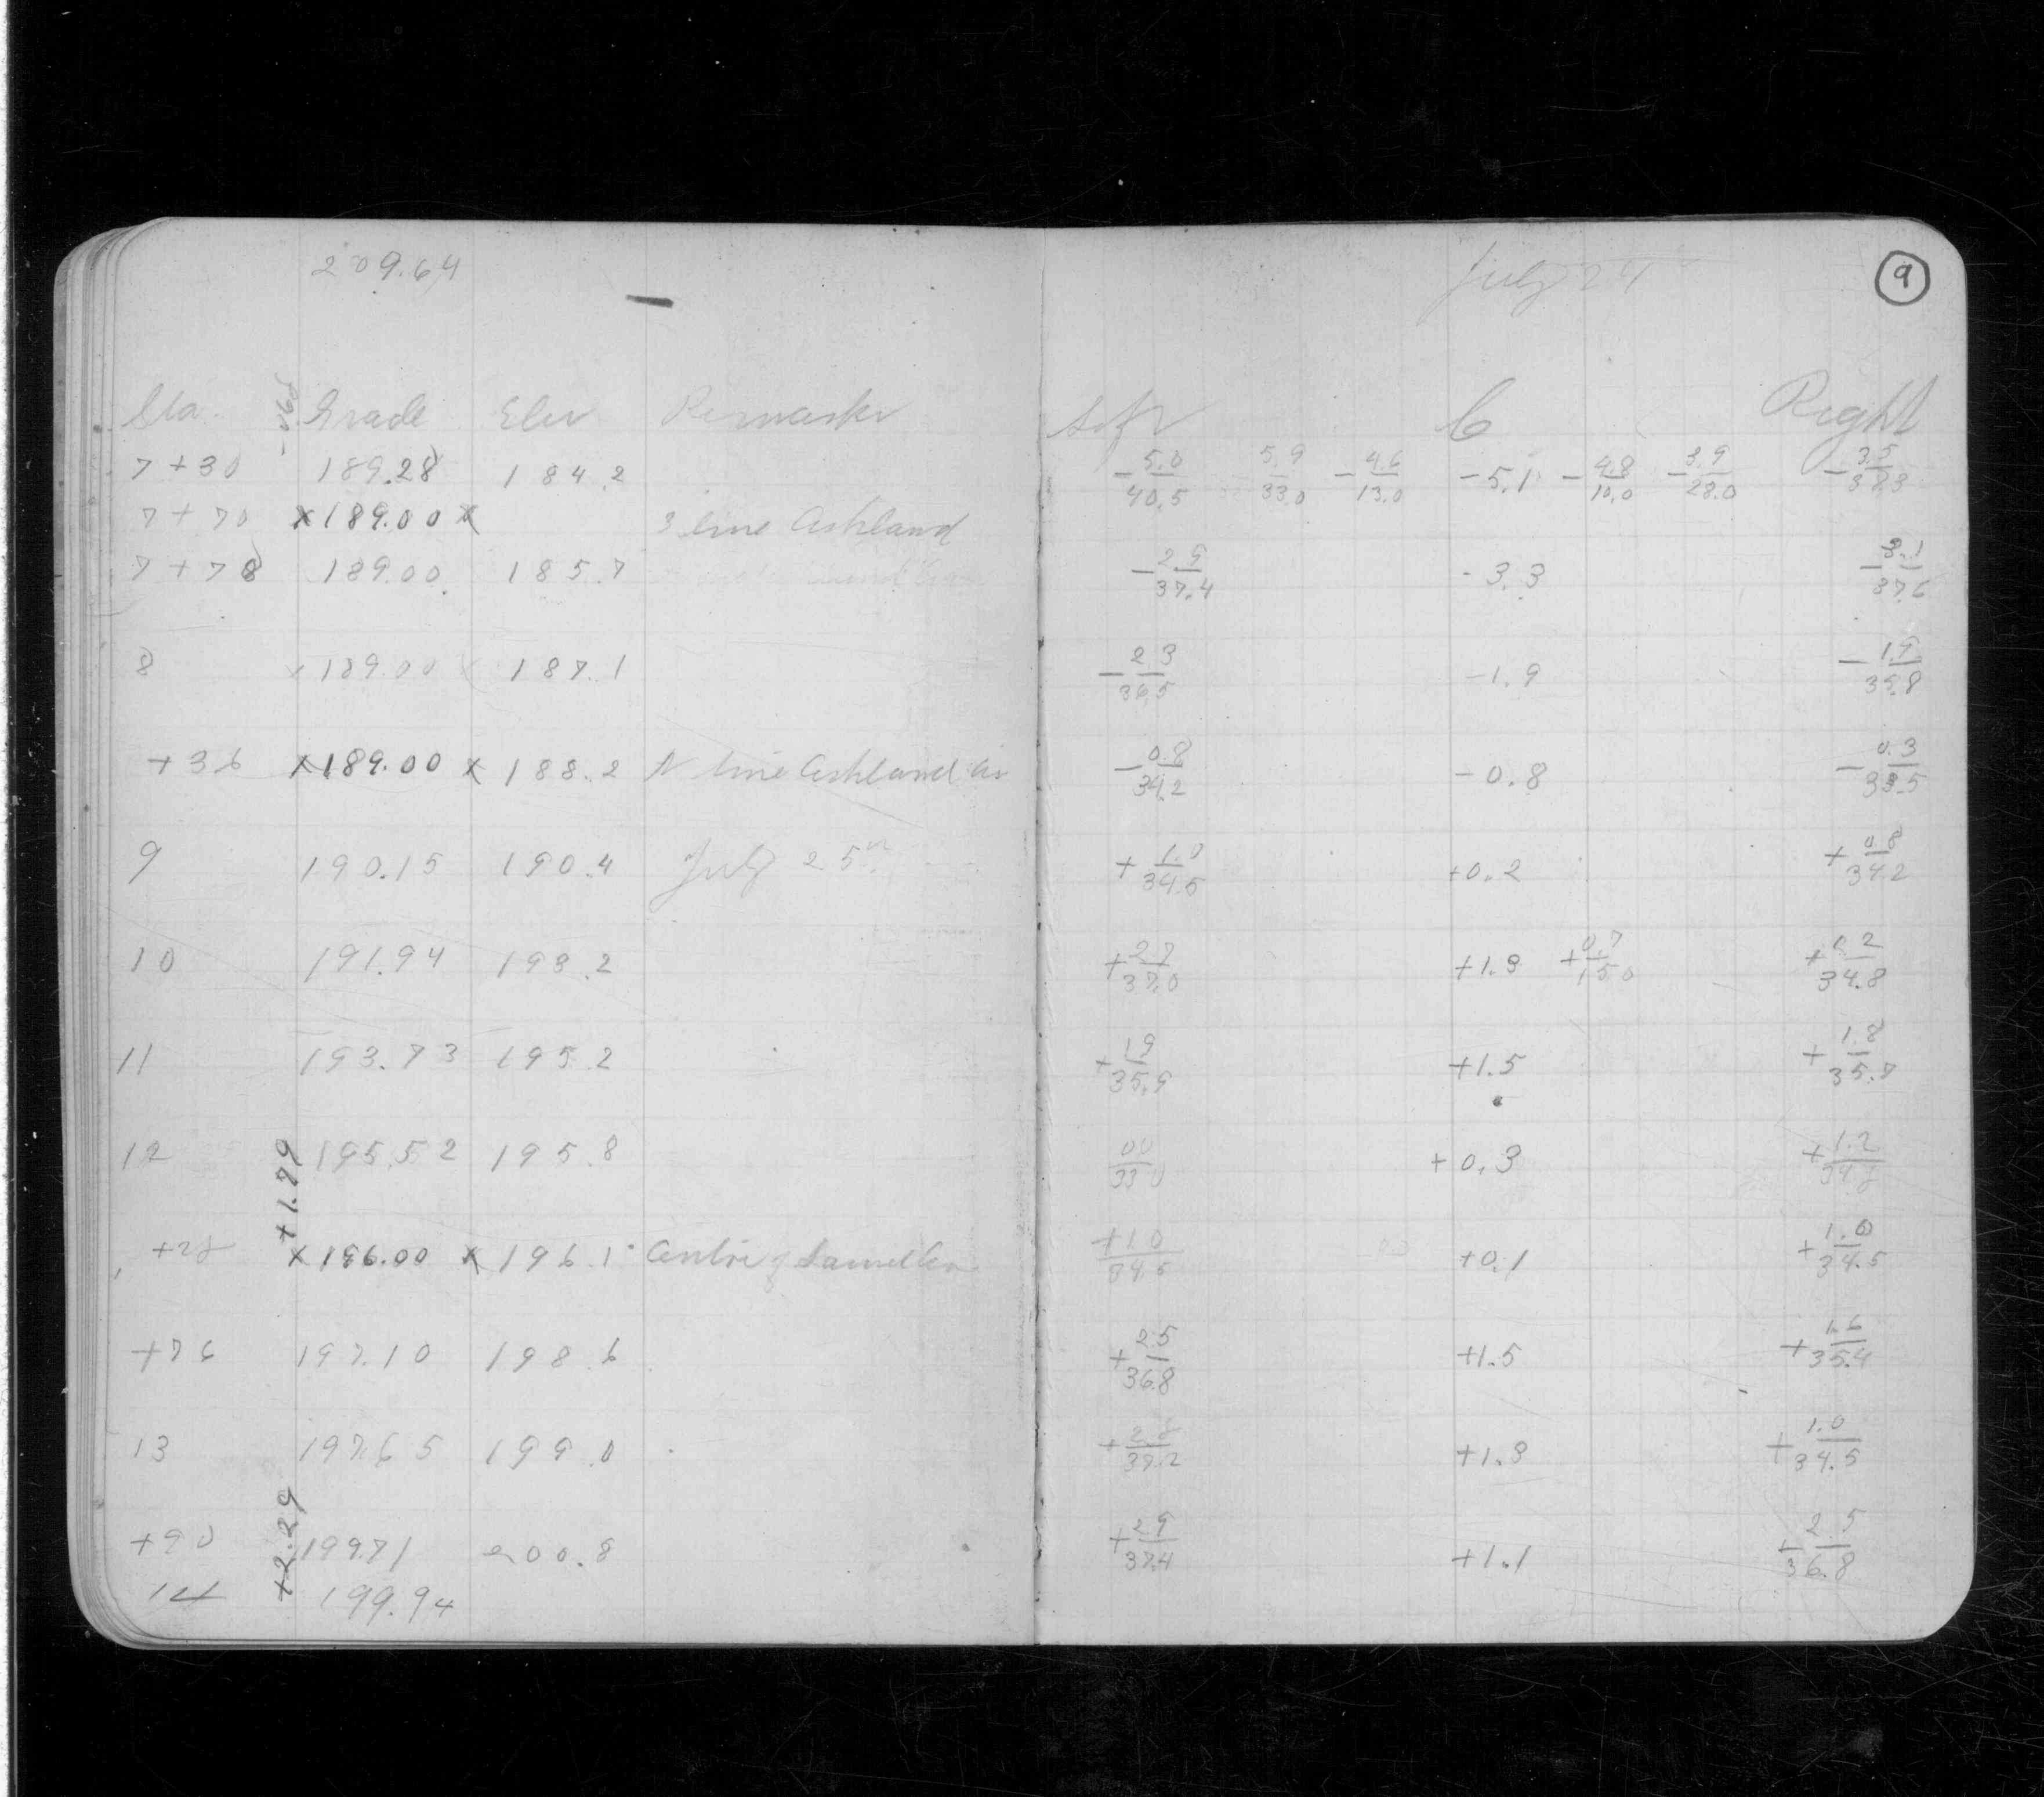 209.64 July 24 9
Sta. Grade Elev Remarks Left C Right
7+30 189.28 184.2 -5.0/40.5 5.9/33.0 -4.6/13.0 -5.1 -4.8/10.0 -3.9/28.0 -3.5/38.3
7+70 x189.00x S line Ashland
7+78 189.00 185.7 -2.9/37.4 -3.3 -3.1/37.6
8 x189.00x 187.1 -2.3/36.5 -1.9 -1.9/35.8
+36 x189.00x 188.2 N line Ashland Av -0.8/34.2 -0.8 -0.3/33.5
9 190.15 190.4 July 25th +1.0/34.5 +0.2 +0.8/34.2
10 191.94 193.2 +2.7/37.0 +1.3 +0.7/15.0 +1.2/34.8
11 193.73 195.2 +1.9/35.9 +1.5 +1.8/35.7
12 +1.79 195.52 195.8 00/33.0 +0.3 +1.2/34.8
x196.00x 196.1 Centre of Laurel Av +1.0/34.5 +0.1 +1.0/34.5
+76 197.10 198.6 +2.5/36.8 +1.5 +1.6/35.4
13 197.65 199.0 +2.8/37.2 +1.3 +1.0/34.5
+90 +2.29 199.71 200.8 +2.9/37.4 +1.1 +2.5/36.8
14 199.94